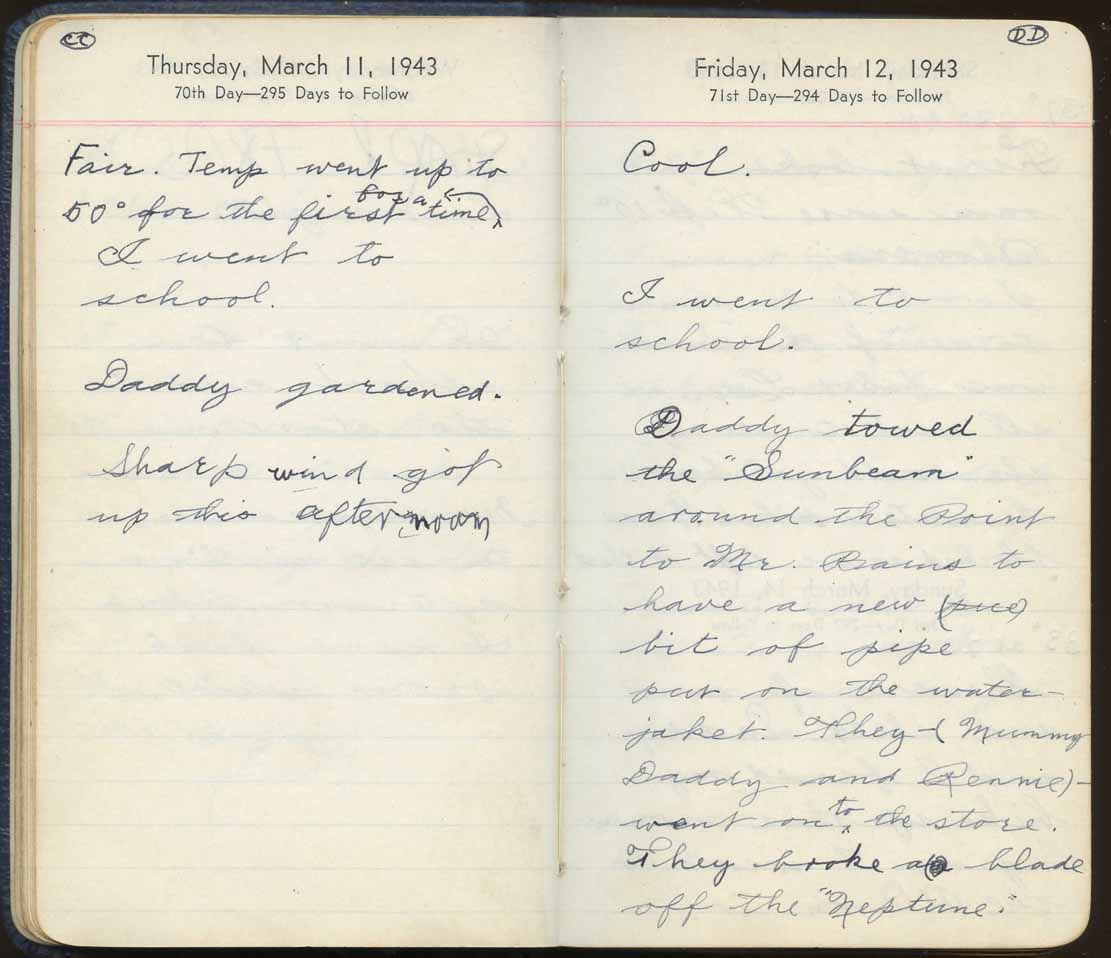 CC
Thursday, March 11, 1943
70th Day—295 Days to Follow
Fair. Temp went up to
for a
50° for the first time
I went to
school.
Daddy gardened.
Sharp wind got
up this afternoon
DD
Friday, March 12, 1943
71st Day—294 Days to Follow
Cool.
I went to
school.
Daddy towed
the "Sunbeam"
around the Point
to Mr. Rains to
have a new
bit of pipe
put on the water-
jaket. They-(Mummy
Daddy and Rennie)-
to
went on the store.
They broke a blade
off the "Neptune."